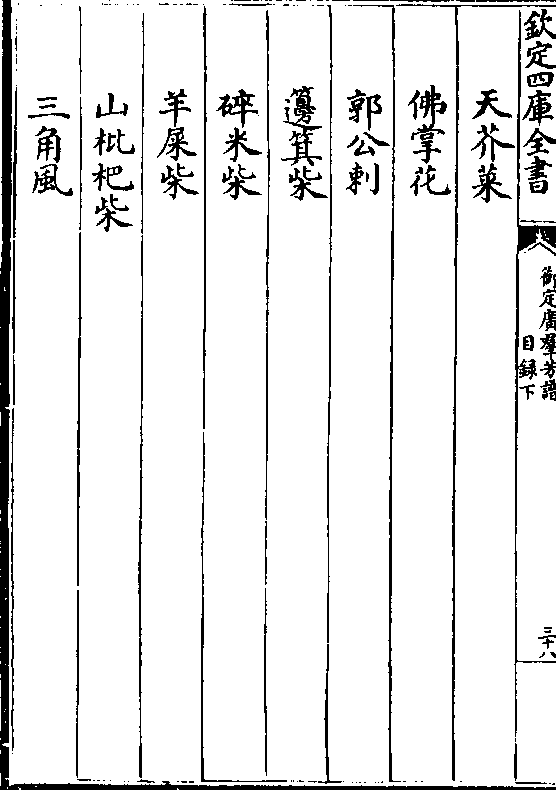 欽定四庫全書
御定廣羣芳譜
目録下
三十八
天芥菜
佛掌花
郭公刺
籩箕柴
碎米柴
羊屎柴
山枇杷柴
三角風